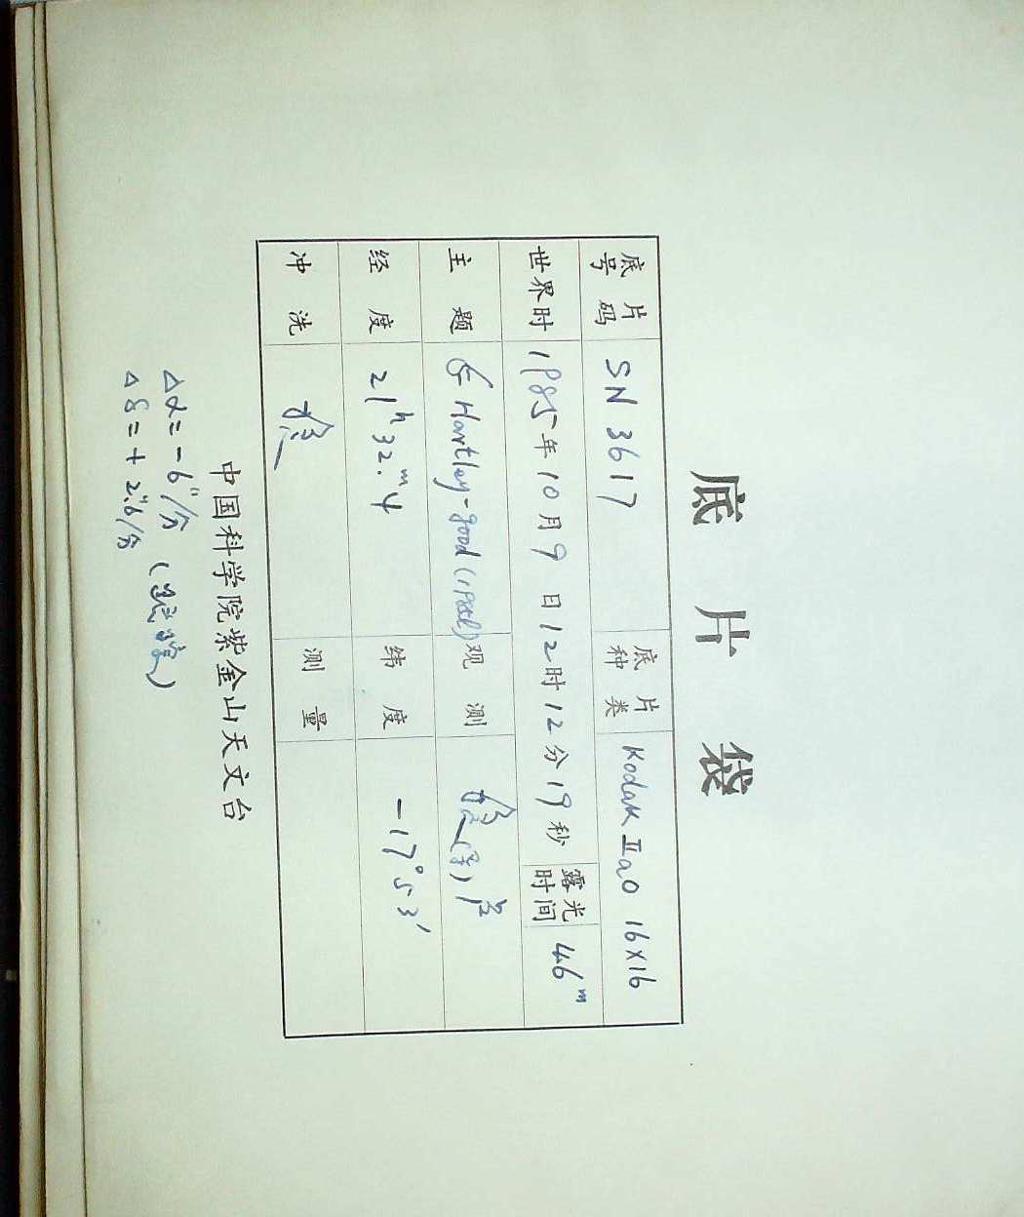 底片袋
底片号码 SN 3617 底片种类 Kodak IIaO 16×16
世界时 1985年10月9日12时12分19秒 露光时间 46ᵐ
主题 Hartley-good 观测
经度 21ʰ32.ᵐ4 纬度 -17°53′
冲洗 测量
中国科学院紫金山天文台
Δα = -6″/分
Δδ = +2″.6/分